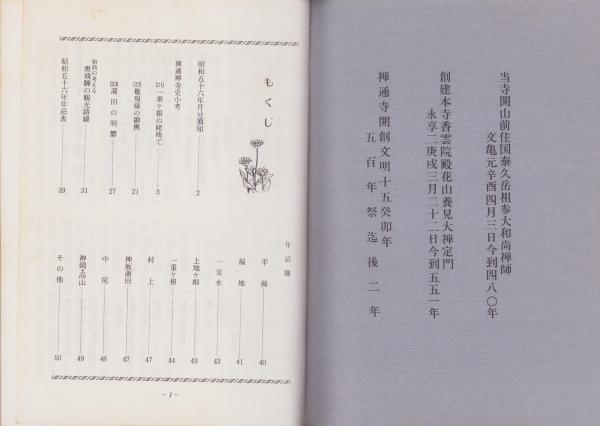 当寺開山前住国泰久岳祖参大和尚禅師
文亀元辛酉四月三日今到四八〇年
創建本寺香雲院殿花山養見大禅定門
永享二庚戌三月二十二日今到五五一年
禅通寺開創文明十五癸卯年
五百年祭迄後二年
もくじ
昭和五十六年月分須知……2
禅通禅寺史小考
(21)一重ケ根の姥捨て……3
(22)権現様の御輿……21
(23)蒲田の明礬……27
和尚の考える
奥飛騨の観光路線……31
昭和五十六年年忌表……39
年忌踊
平湯……40
福地……41
一宝水……43
上地ケ根……43
一重ケ根……44
村上……47
神坂蒲田……47
中尾……48
神岡・高山……49
その他……50
－1－